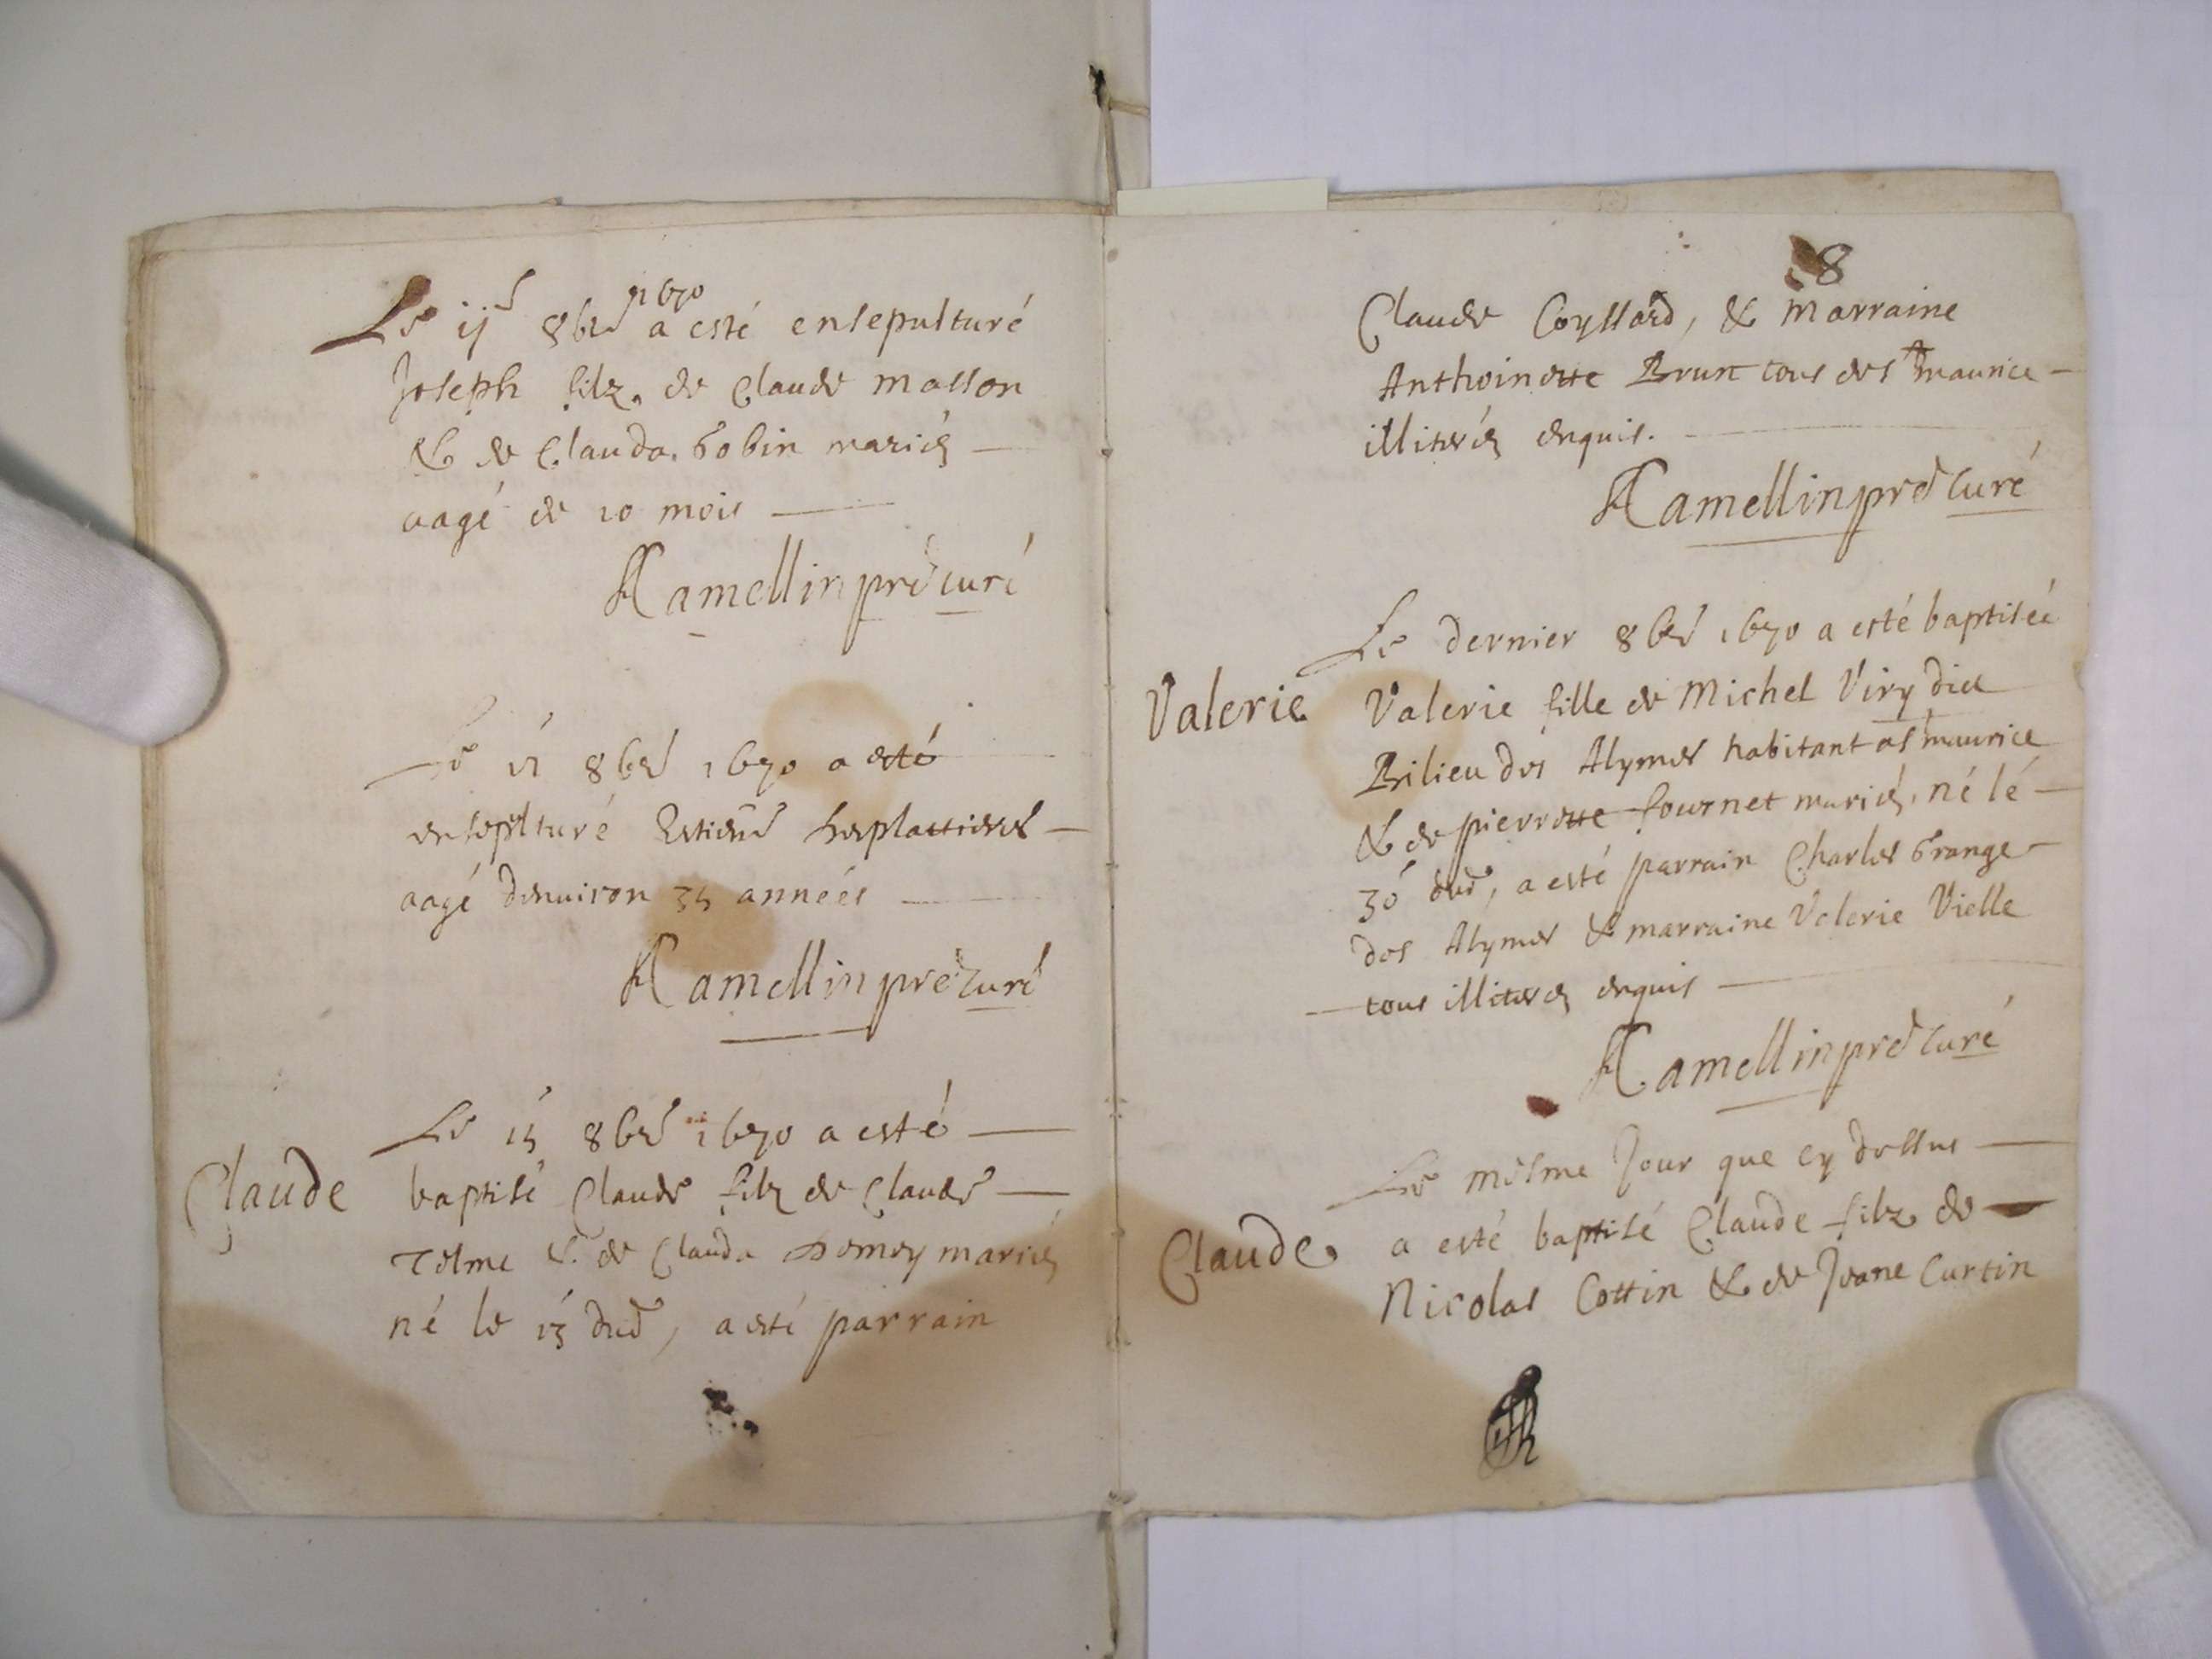 Le ij 8bre 1670 a esté ensepulturé
Joseph filz de Claude Masson
& de Clauda Gobin mariés
aagé de 10 mois
A Camellin pre curé
Le 11 8bre 1670 a esté
ensepulturé Estiene
aagé denuiron 35 années
A Camellin pre curé
Le 15 8bre 1670 a esté
Claude baptisé Claude filz de Claude
Tesme & de Clauda Demey mariés
né le 13 dud, a esté parrain
8
Claude Coyllard, & marraine
Anthoinette Brun tous des St maurice
illiterés enquis.
A Camellin pre curé
Le dernier 8bre 1670 a esté baptisée
Valerie Valerie fille de Michel Viry dict
Brilieu des Alymes habitant a St maurice
& de pierrette fournet mariés, né le
30 dud, a esté parrain Charles Grange
des Alymes & marraine Valerie Vielle
tous illiterés enquis
A Camellin pre curé
Le mesme Jour que cy dessus
Claude a esté baptisé Claude filz de
Nicolas Cottin & de Jeane Curtin